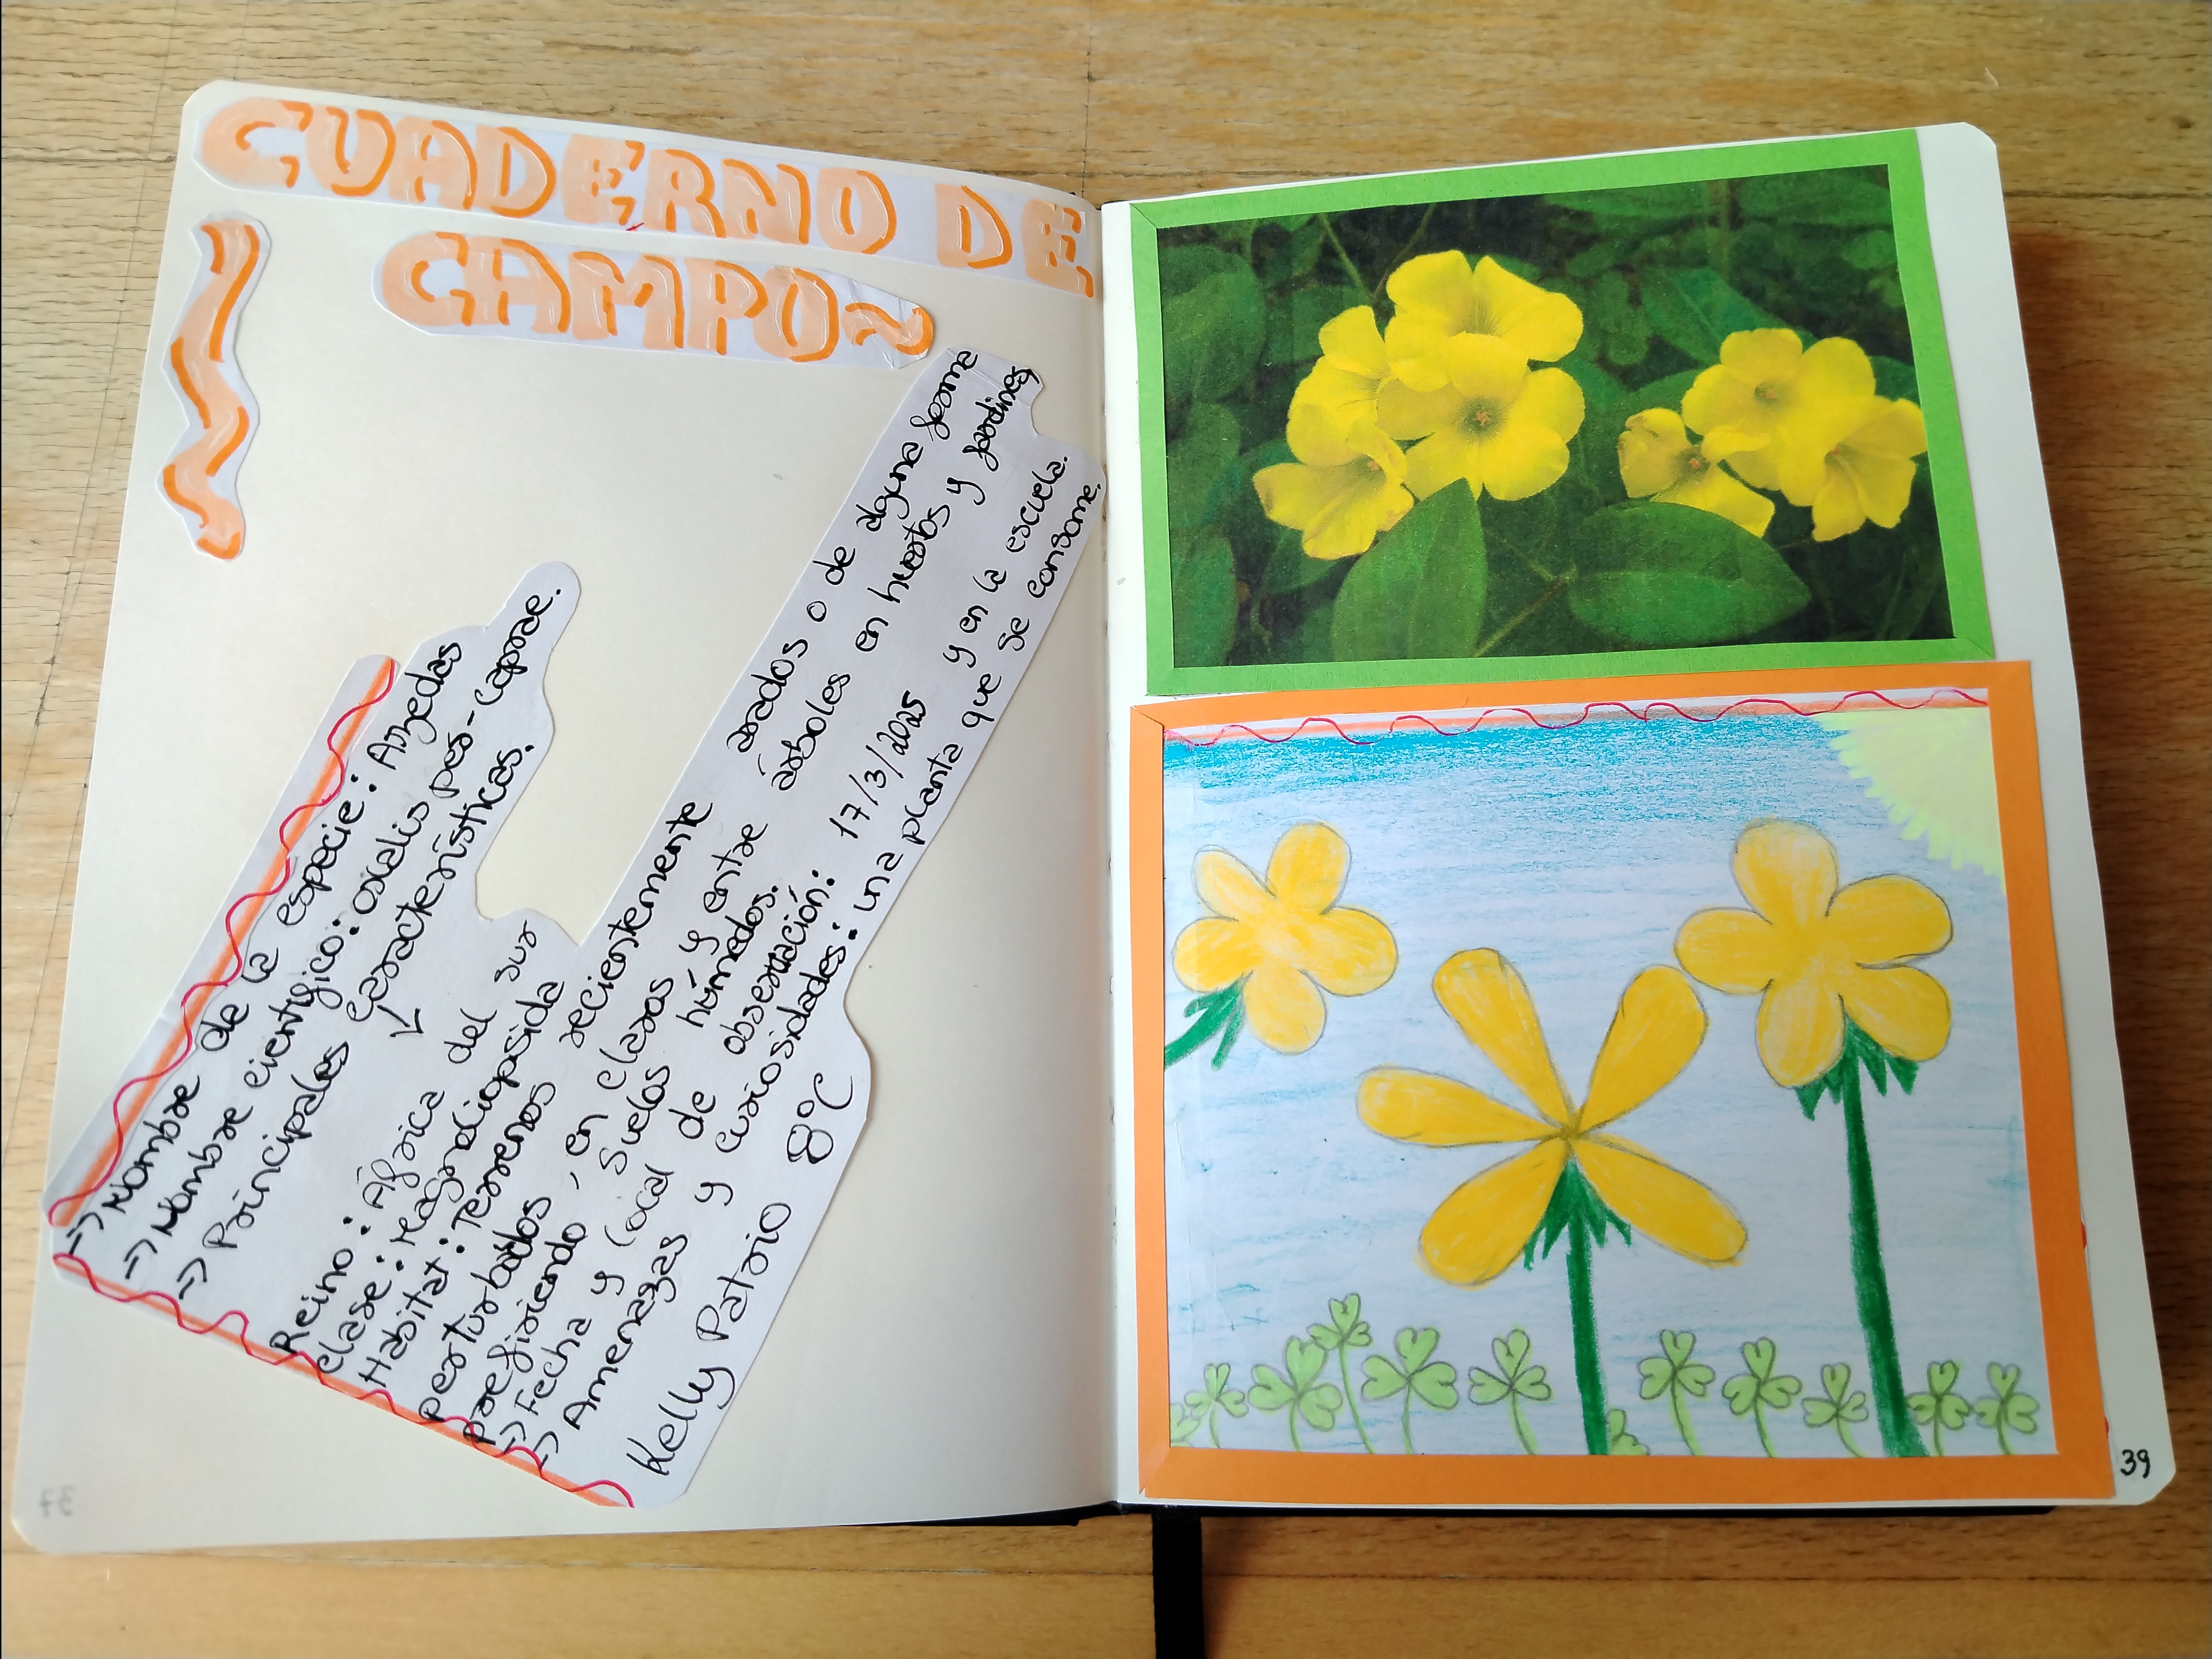 CUADERNO DE
CAMPO~
=> Nombre de la especie: Anzedas
=> Nombre científico: oxalis pes-caprae.
=> Principales características.
Reino: África del sur
Clase: Magnoliopsida
Habitat: Terrenos recientemente arados o de alguna forma
perturbados, en claros y entre árboles en huertos y jardines,
prefiriendo suelos húmedos.
=> Fecha y local de observación: 17/3/2025 y en la escuela.
=> Amenazas y curiosidades: una planta que se consome.
Kelly Patrio 8ºC
37
39